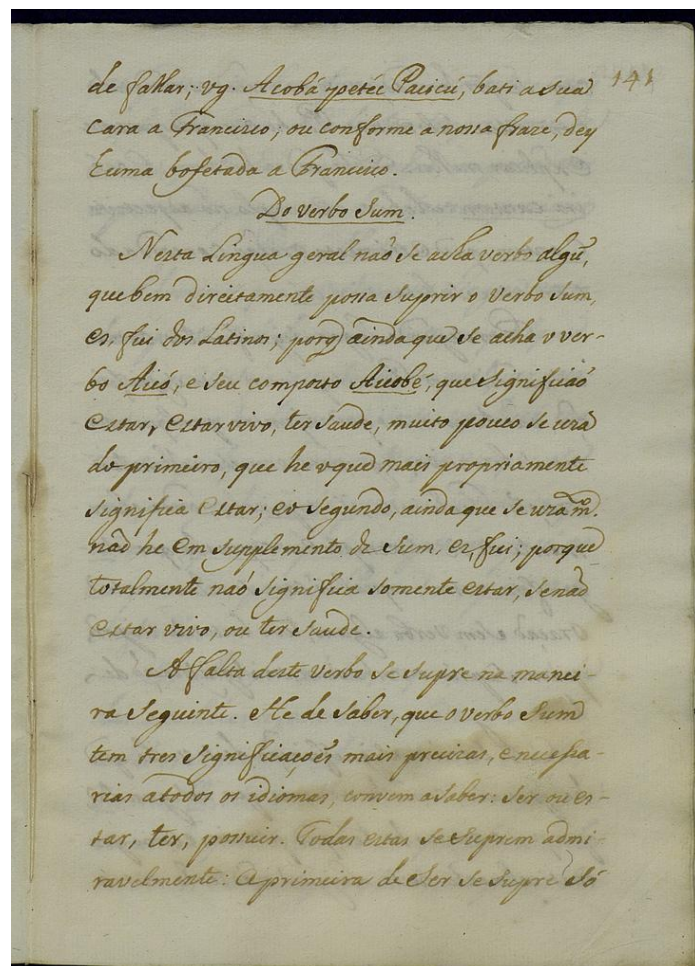 141
de fallar; vg. Acobá petéc Pacicú, bati a sua
cara a Francisco; ou conforme a nossa fraze, dey
huma bofetada a Francisco.
Do verbo Sum.
Nesta Lingua geral naõ se acha verbo algũ,
que bem direitamente possa suprir o verbo Sum,
es, fui dos Latinos; porq̃ ainda que se acha o ver-
bo Aicó, e seu composto Aicobé, que significaõ
estar, estar vivo, ter saude, muito pouco se uza
do primeiro, que he o que mais propriamente
significa estar; e o segundo, ainda que se uza m.to
naõ he em supplemento de Sum, es, fui; porque
totalmente naõ significa somente estar, senaõ
estar vivo, ou ter saude.
A falta deste verbo se supre na manei-
ra seguinte. He de saber, que o verbo Sum
tem tres significaçoẽs mais precizas, e necessa-
rias a todos os idiomas, convem a saber: ser ou es-
tar, ter, possuir. Todas estas se suprem admi-
ravelmente: A primeira de ser se supre só